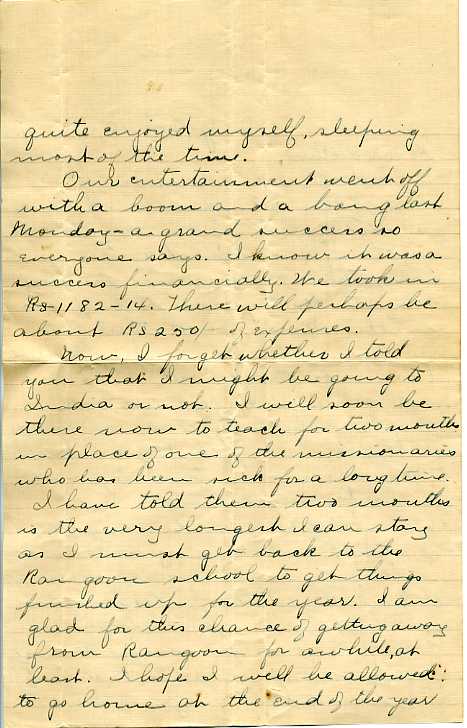 quite enjoyed myself, sleeping
most of the time.
Our entertainment went off
with a boom and a bang last
Monday - a grand success so
everyone says. I know it was a
success financially. We took in
Rs-1182-14. There will perhaps be
about Rs 250/ of expenses.
Now, I forget whether I told
you that I might be going to
India or not. I will soon be
there now to teach for two months
in place of one of the missionaries
who has been sick for a long time.
I have told them two months
is the very longest I can stay
as I must get back to the
Rangoon school to get things
finished up for the year. I am
glad for this chance of getting away
from Rangoon for awhile, at
least. I hope I will be allowed
to go home at the end of the year